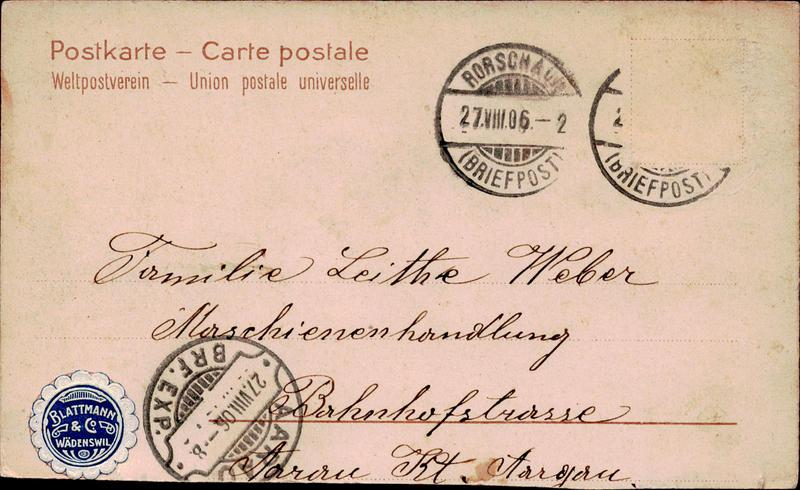 Postkarte – Carte postale
Weltpostverein – Union postale universelle
RORSCHACH
27.VIII.06.–2
(BRIEFPOST)
(BRIEFPOST)
Familie Leithe Weber
Maschienenhandlung
Bahnhofstrasse
Aarau Kt. Aargau.
AARAU
27.VIII.06.–8
BRF. EXP.
BLATTMANN
& Co
WÄDENSWIL